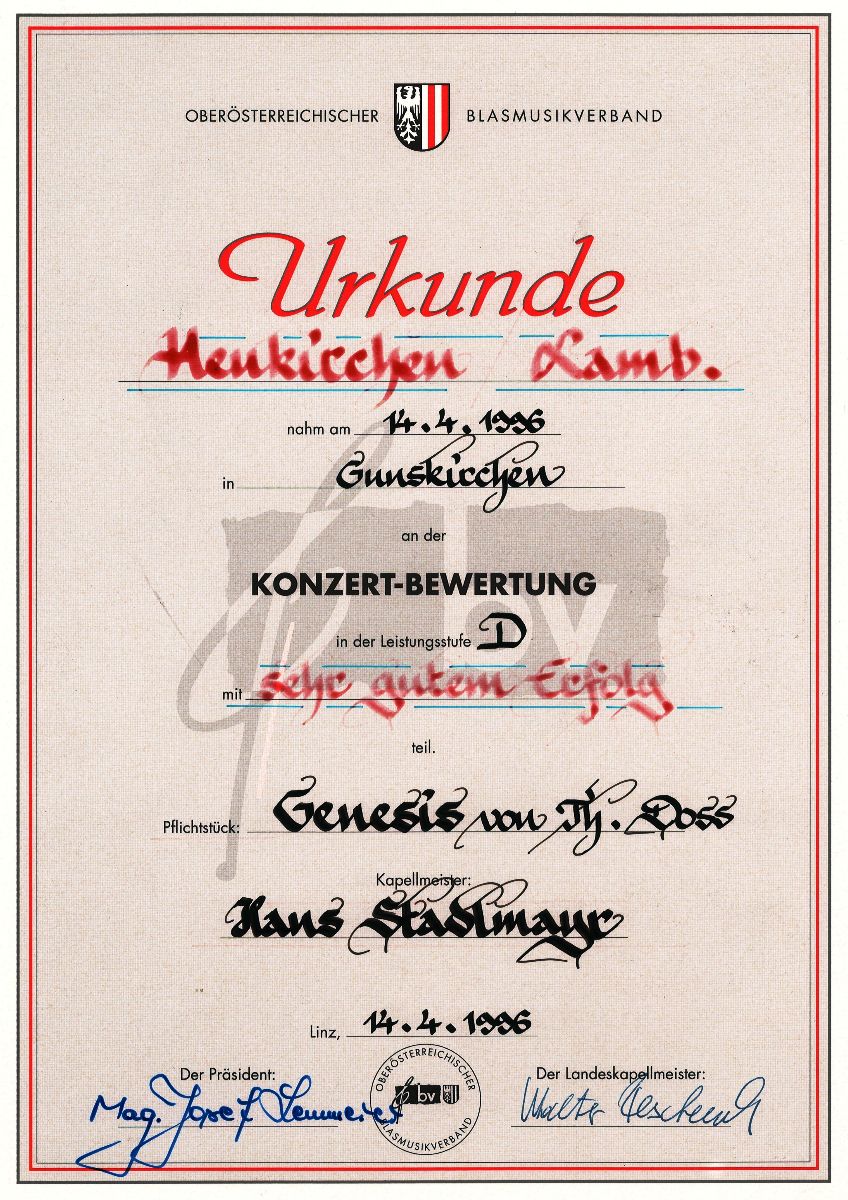 OBERÖSTERREICHISCHER BLASMUSIKVERBAND
Urkunde
Neukirchen Lamb.
nahm am 14.4.1996
in Gunskirchen
an der
KONZERT-BEWERTUNG
bv
in der Leistungsstufe D
mit sehr gutem Erfolg
teil.
Pflichtstück: Genesis von Th. Doss
Kapellmeister:
Hans Stadlmayr
Linz, 14.4.1996
Der Präsident:
Der Landeskapellmeister:
OBERÖSTERREICHISCHER
bv
BLASMUSIKVERBAND
Mag. Josef
Walter